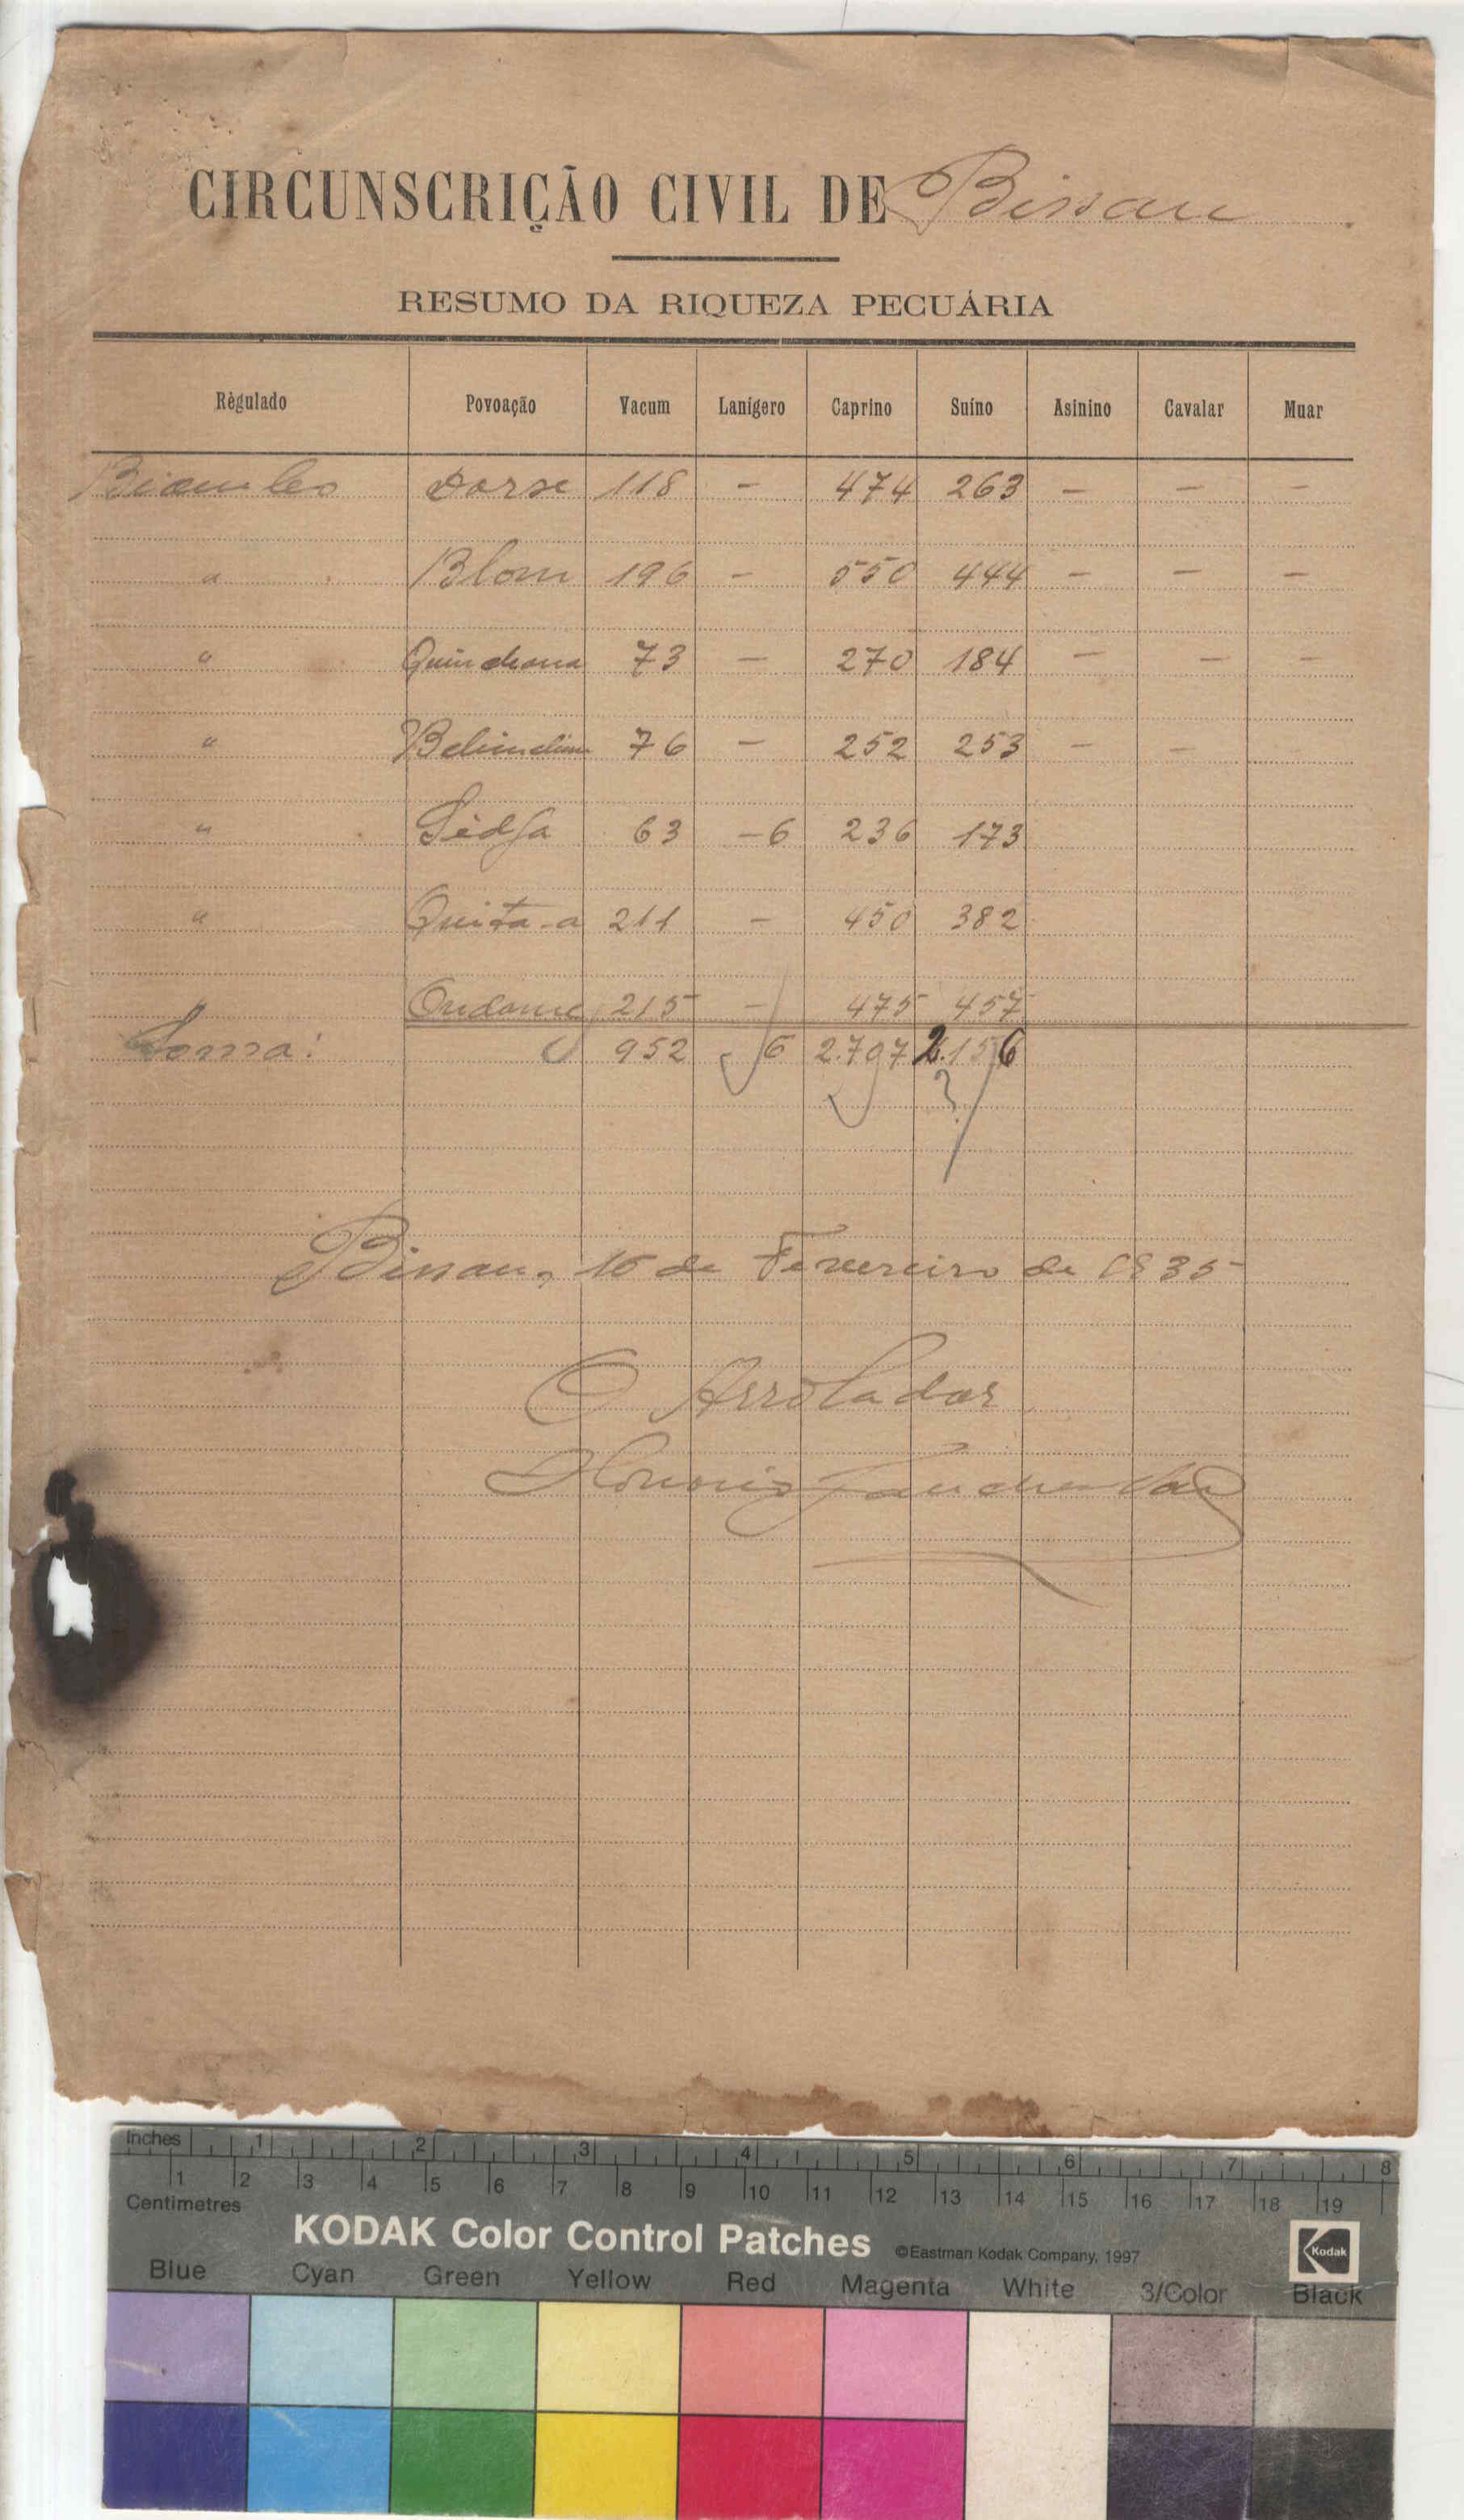 CIRCUNSCRIÇÃO CIVIL DE Bissau
RESUMO DA RIQUEZA PECUÁRIA
Règulado Povoação Vacum Lanígero Caprino Suíno Asinino Cavalar Muar
Biombo Dorse 118 - 474 263 - - -
" Blom 196 - 550 444 - - -
" 73 - 270 184 - - -
" 76 - 252 253 - - -
" 63 -6 236 173
" Quita-a 211 - 450 382
Ondame 215 - 475 457
Soma: 952 6 2.707 2.156
?
Bissau, 16 de Fevereiro de 1935
O Arrolador
Inches 1 2 3 4 5 6 7 8
1 2 3 4 5 6 7 8 9 10 11 12 13 14 15 16 17 18 19
Centimetres
KODAK Color Control Patches ©Eastman Kodak Company, 1997 Kodak
Blue Cyan Green Yellow Red Magenta White 3/Color Black